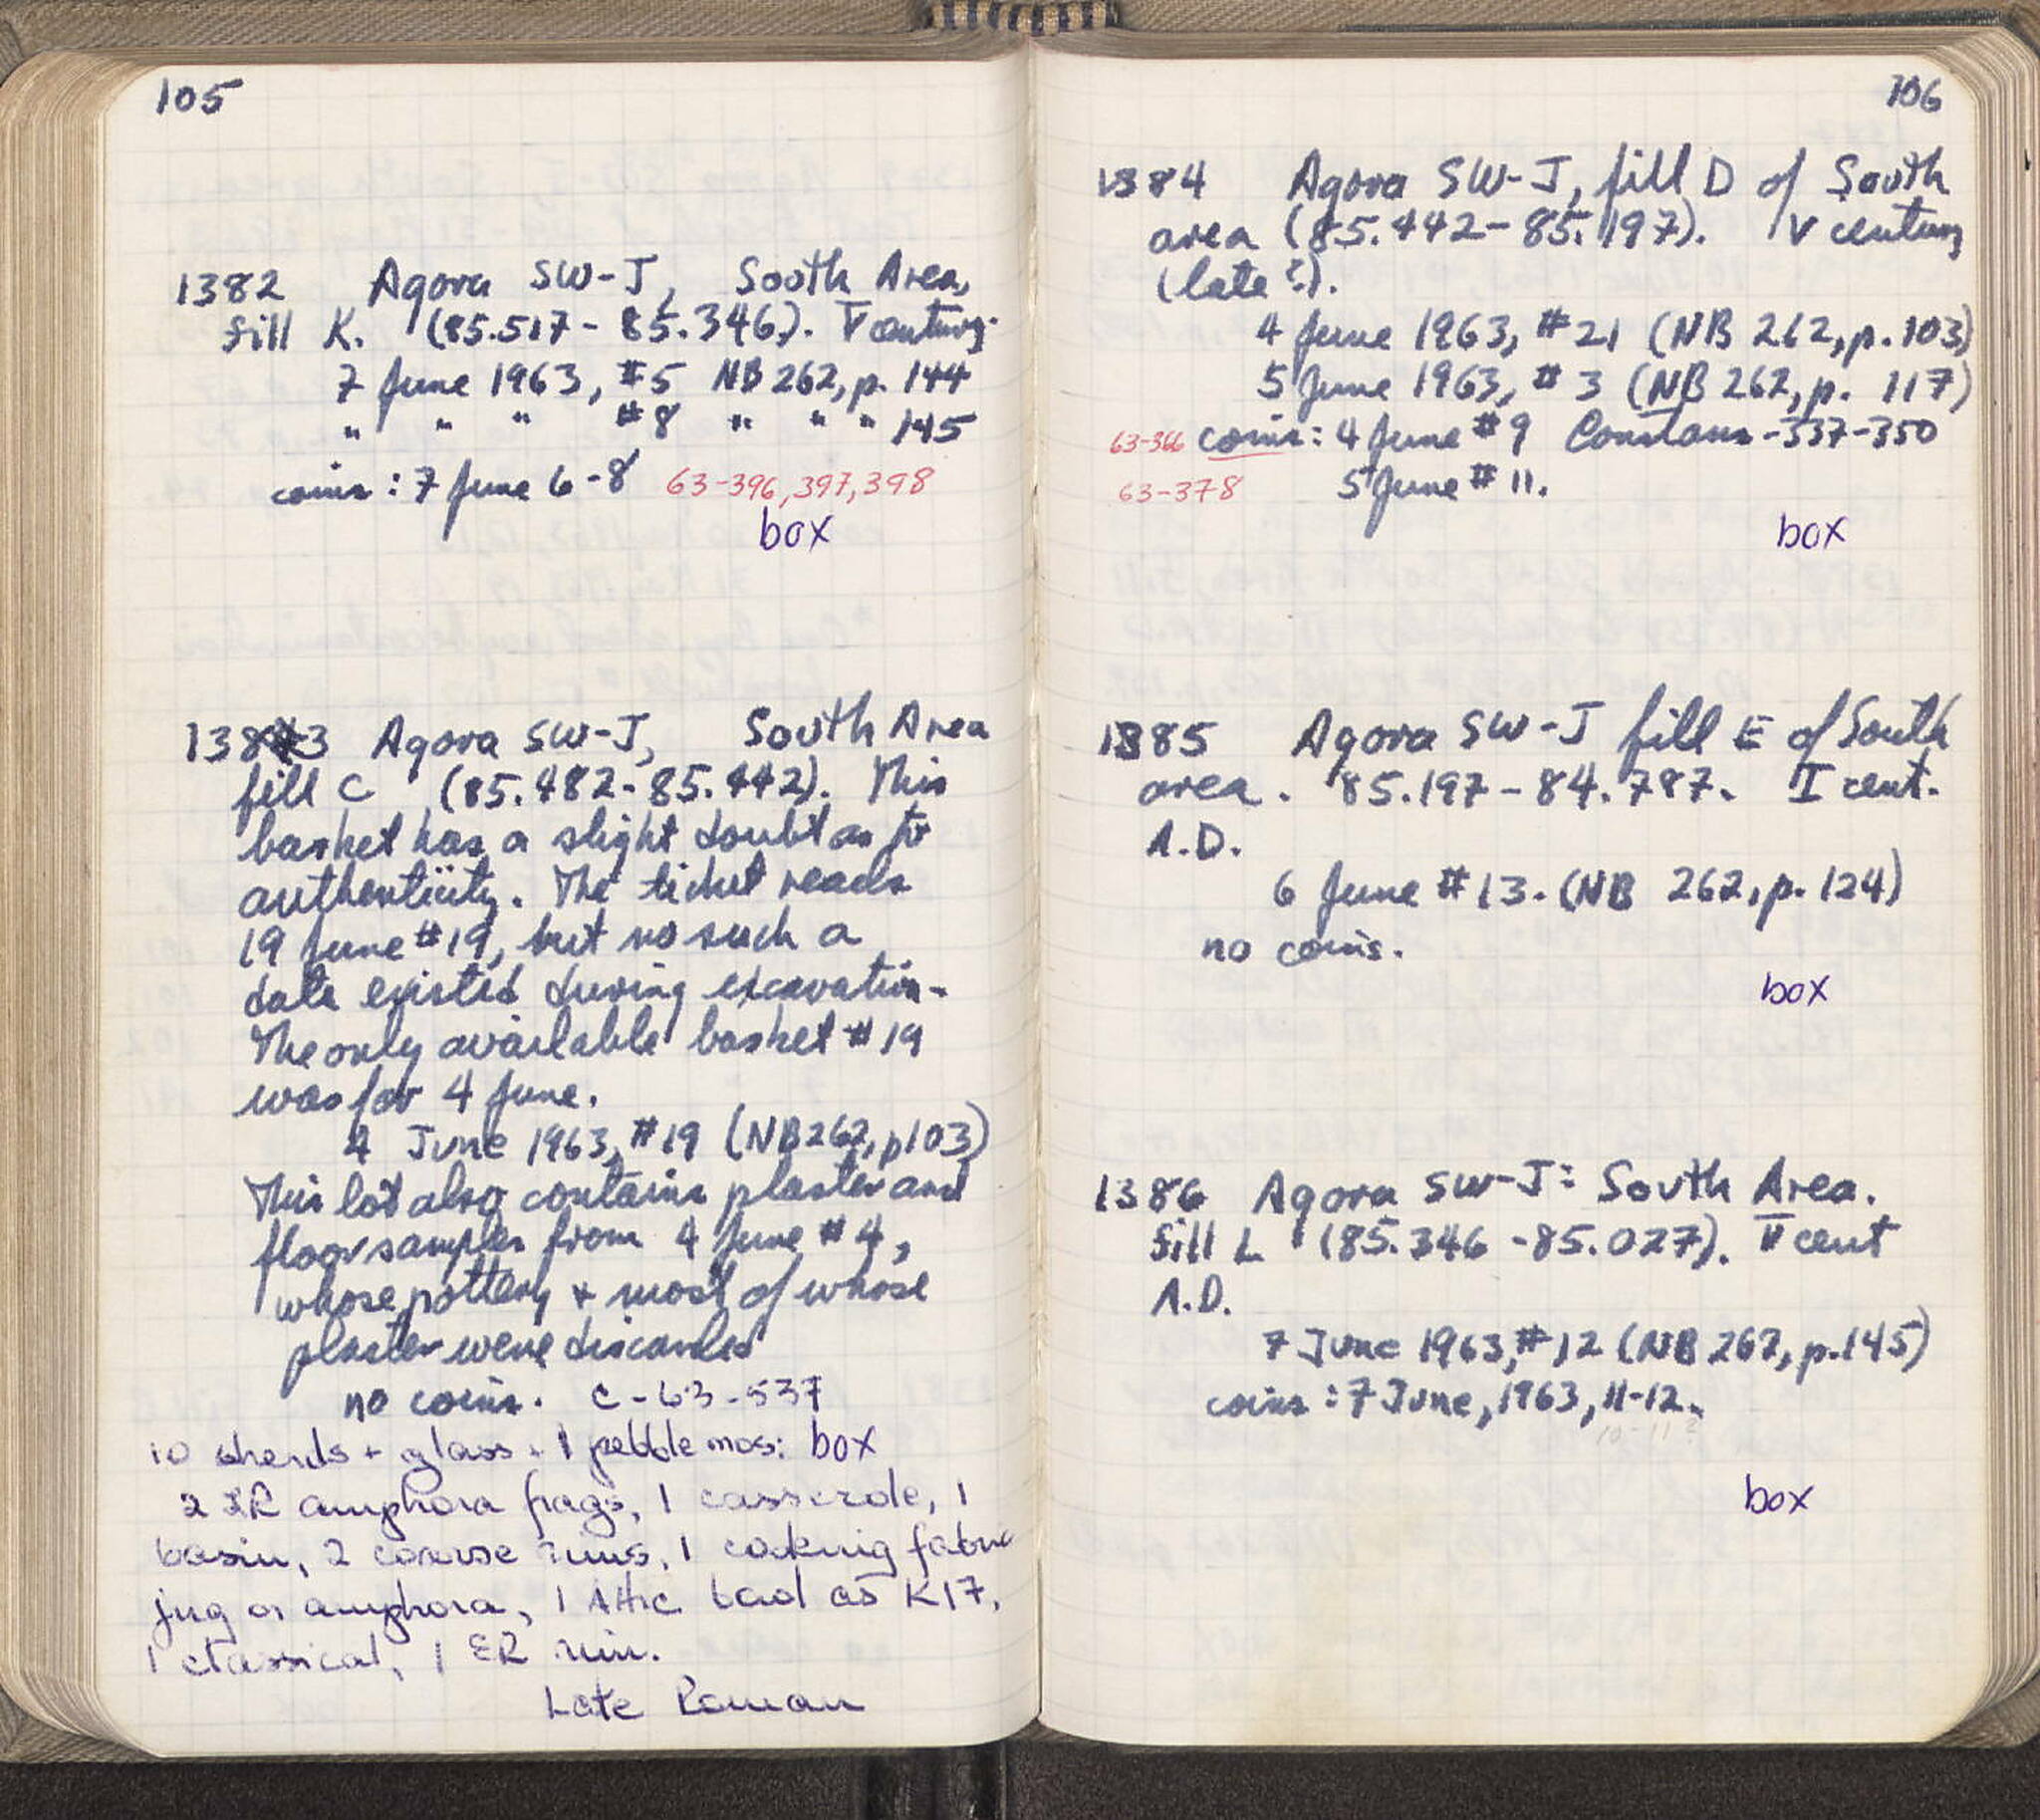 105
1382 Agora SW-J, South Area,
fill K. (85.517 - 85.346). V century.
7 June 1963, #5 NB 262, p. 144
" " " #8 " " " 145
coins : 7 June 6-8 63-396, 397, 398
box
1383 Agora SW-J, South Area
fill C (85.482-85.442). This
basket has a slight doubt as to
authenticity. The ticket reads
19 June #19, but no such a
date existed during excavation.
The only available basket #19
was for 4 June.
4 June 1963, #19 (NB262, p103)
This lot also contains plaster and
floor samples from 4 June #4,
whose pottery + most of whose
plaster were discarded
no coins. C-63-537
10 sherds + glass + 1 pebble mos: box
2 LR amphora frags, 1 casserole, 1
basin, 2 coarse rims, 1 cooking fabric
jug or amphora, 1 Attic bowl as K17,
1 classical, 1 ER rim.
Late Roman
106
1384 Agora SW-J, fill D of South
area (85.442-85.197). IV century
(late?).
4 June 1963, #21 (NB 262, p. 103)
5 June 1963, #3 (NB 262, p. 117)
63-366 coins: 4 June #9 Constans -337-350
63-378 5 June #11.
box
1385 Agora SW-J fill E of South
area. 85.197-84.787. I cent.
A.D.
6 June #13. (NB 262, p. 124)
no coins.
box
1386 Agora SW-J: South Area.
fill L (85.346-85.027). V cent
A.D.
7 June 1963, #12 (NB 262, p.145)
coins : 7 June, 1963, 11-12.
10-11?
box